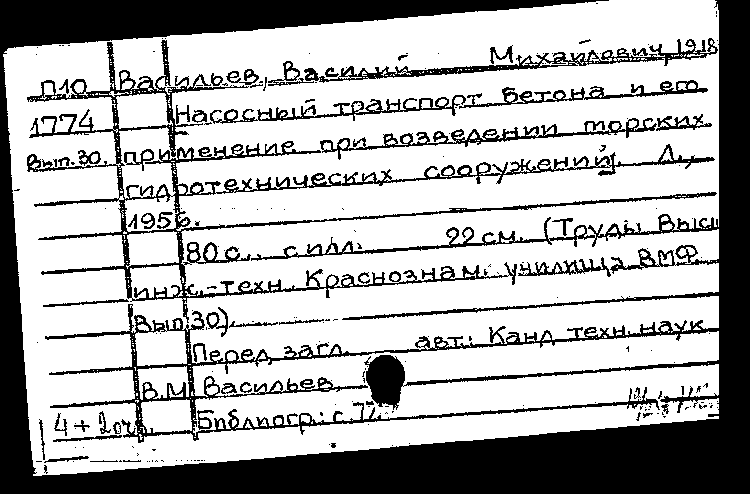 П10 Васильев, Василий Михайлович, 1918
1774 Насосный транспорт бетона и его
Вып. 30. применение при возведении морских
гидротехнических сооружений. Л.,
1956.
80 с., с илл. 22 см. (Труды Высш
инж.-техн. Краснознам. училища ВМФ
Вып 30).
Перед загл. авт.: Канд техн. наук
В.М. Васильев.
4 + 2 Библиогр.: с. 77.